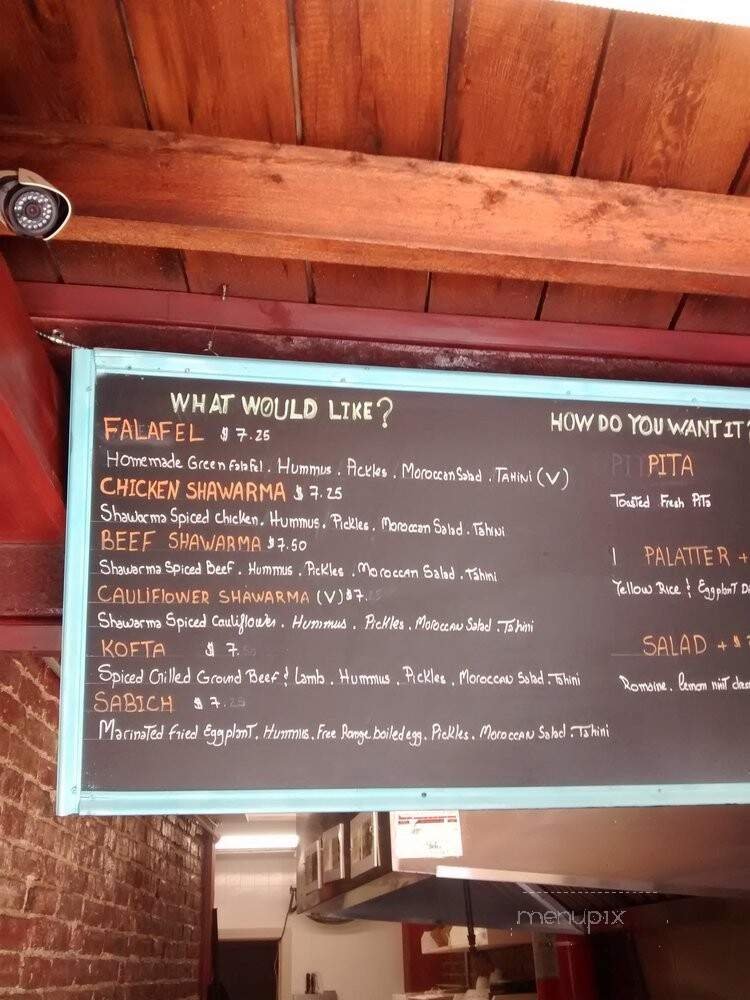 WHAT WOULD LIKE?
FALAFEL $7.25
Homemade Green Falafel. Hummus. Pickles. Moroccan Salad. TAHINI (V)
CHICKEN SHAWARMA $7.25
Shawarma Spiced chicken. Hummus. Pickles. Moroccan Salad. Tahini
BEEF SHAWARMA $7.50
Shawarma Spiced Beef. Hummus. Pickles. Moroccan Salad. Tahini
CAULIFLOWER SHAWARMA (V) $7.
Shawarma Spiced Cauliflower. Hummus. Pickles. Moroccan Salad. Tahini
KOFTA $7.
Spiced Grilled Ground Beef & Lamb. Hummus. Pickles. Moroccan Salad. Tahini
SABICH $7.25
Marinated fried Eggplant. Hummus. Free Range boiled egg. Pickles. Moroccan Salad. Tahini
HOW DO YOU WANT IT?
PITA
Toasted Fresh Pita
PALATTER +
Yellow Rice & Eggplant
SALAD + $
Romaine. lemon mint
menupix